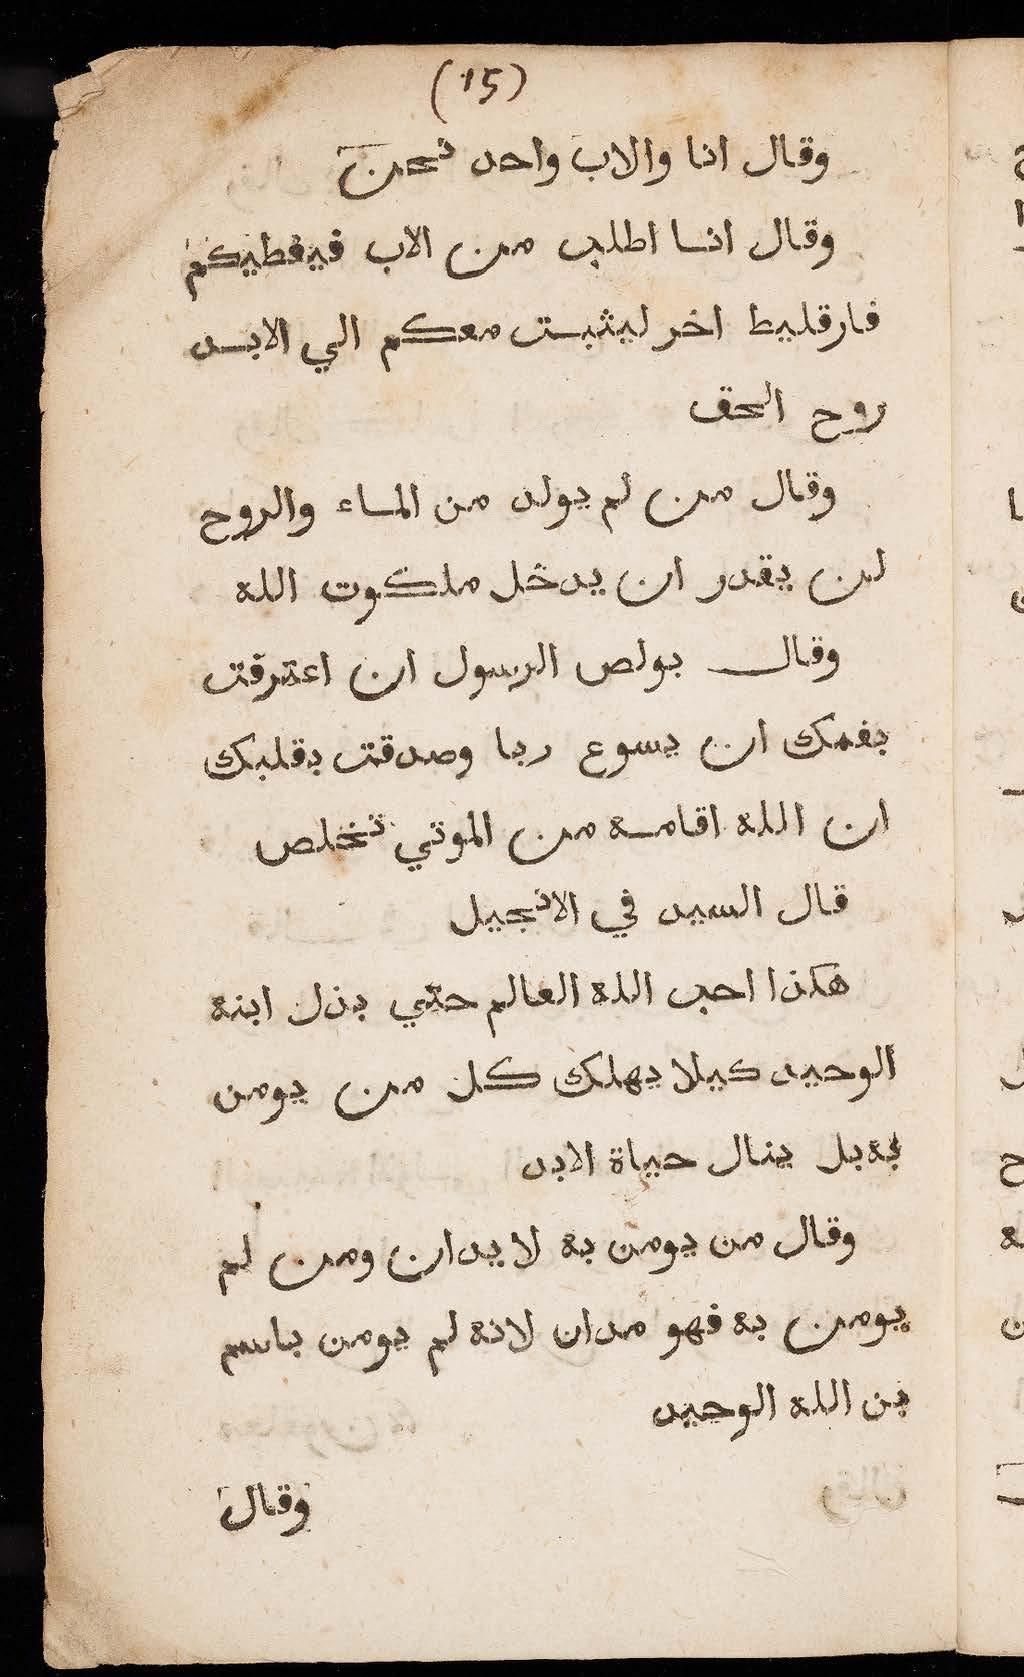 (15)
وقال انا والاب واحد نحن
وقال انا اطلب من الاب فيعطيكم
فارقليط اخر ليثبت معكم الي الابد
روح الحق
وقال من لم يولد من الماء والروح
لن يقدر ان يدخل ملكوت الله
وقال بولص الرسول ان اعترفت
بفمك ان يسوع ربا وصدقت بقلبك
ان الله اقامه من الموتي تخلص
قال السيد في الانجيل
هكذا احب الله العالم حتي بذل ابنه
الوحيد كيلا يهلك كل من يومن
به بل ينال حياة الابد
وقال من يومن به لا يدان ومن لم
يومن به فهو مدان لانه لم يومن باسم
بن الله الوحيد
وقال